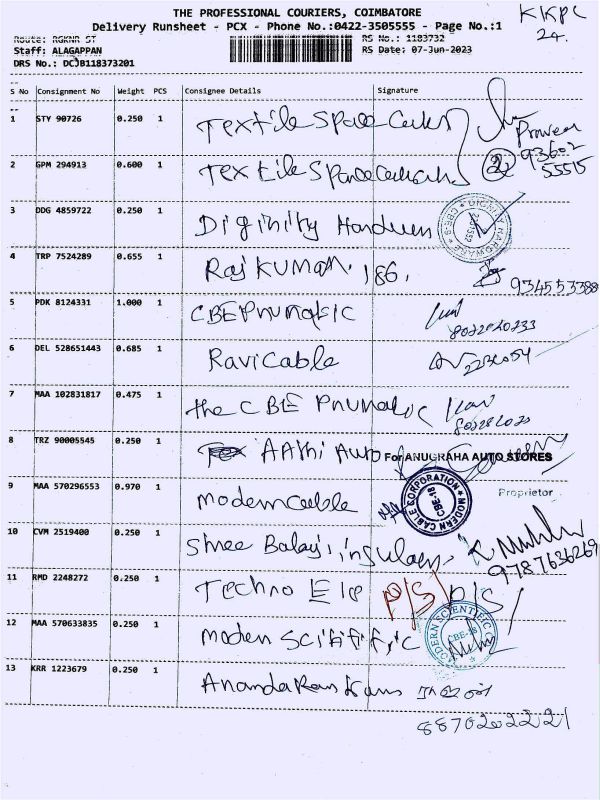 THE PROFESSIONAL COURIERS, COIMBATORE
KKPC
24.
Delivery Runsheet - PCX - Phone No.:0422-3505555 - Page No.:1
Route: RGKNR ST
RS No.: 1183732
Staff: ALAGAPPAN
RS Date: 07-Jun-2023
DRS No.: DCJB118373201
S No Consignment No Weight PCS Consignee Details Signature
1 STY 90726 0.250 1 Textile Space
Praveen
93602
55515
2 GPM 294913 0.600 1 Textile Space
3 DDG 4859722 0.250 1 Diginity
HARDWARE CBE-9
4 TRP 7524289 0.655 1 Raj KUMAR. 186,
934553388
5 PDK 8124331 1.000 1 CBE Pnumatic
6 DEL 528651443 0.685 1 Ravi Cable
7 MAA 102831817 0.475 1 the CBE Pnumatic
8 TRZ 90005545 0.250 1 AAthi Auto For ANUGRAHA AUTO STORES
Proprietor
9 MAA 570296553 0.970 1 Modern Cable
MODERN CABLE CORPORATION CBE-18
10 CVM 2519400 0.250 1 Shree Balaji
9787636269
11 RMD 2248272 0.250 1 Techno Ele P/S
12 MAA 570633835 0.250 1 Modern
MODERN SCIENTIFIC CBE-18
13 KRR 1223679 0.250 1
8870202221